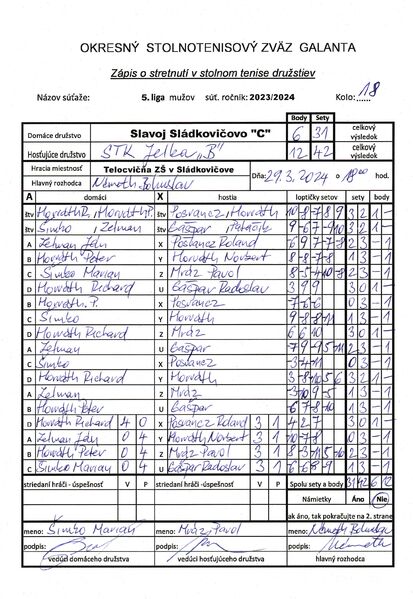 OKRESNÝ STOLNOTENISOVÝ ZVÄZ GALANTA
Zápis o stretnutí v stolnom tenise družstiev
Názov súťaže: 5. liga mužov súť. ročník: 2023/2024 Kolo: 18
Body Sety
Domáce družstvo Slavoj Sládkovičovo "C" 6 31 celkový výsledok
Hosťujúce družstvo STK Jelka „B" 12 42 celkový výsledok
Hracia miestnosť Telocvičňa ZŠ v Sládkovičove
Hlavný rozhodca Németh Bohuslav Dňa: 29.3.2024 o 18 00 hod.
A domáci X hostia loptičky setov sety body
štv Horváth R., Horváth P. štv Posvancz, Horváth 3 2 1 -
štv Šimko, Zelman štv Gašpar, 3 2 1 -
A Zelman Ján X Posvancz Roland 2 3 - 1
B Horváth Peter Y Horváth Norbert 8 -8 -7 8 1 3 - 1
C Šimko Marian Z Mráz Pavol 2 3 - 1
D Horváth Richard U Gašpar Radoslav 3 9 9 3 0 1 -
B Horváth P. X Posvancz -7 -6 -6 0 3 - 1
C Šimko Y Horváth 1 3 - 1
D Horváth Richard Z Mráz 6 6 10 3 0 1 -
A Zelman U Gašpar 2 3 - 1
C Šimko X Posvancz 0 3 - 1
D Horváth Richard Y Horváth 3 -8 -10 5 6 3 2 1 -
A Zelman Z Mráz 1 3 - 1
B Horváth Peter U Gašpar 1 3 - 1
D Horváth Richard 4 0 X Posvancz Roland 3 1 4 2 7 3 0 1 -
A Zelman Ján 0 4 Y Horváth Norbert 3 1 0 3 - 1
B Horváth Peter 0 4 Z Mráz Pavol 3 1 2 3 - 1
C Šimko Marian 0 4 U Gašpar Radoslav 3 1 1 3 - 1
striedaní hráči - úspešnosť V P striedaní hráči - úspešnosť V P Spolu sety a body 31 42 6 12
Námietky Áno Nie
ak áno, tak pokračujte na 2. strane
meno: Šimko Marian meno: Mráz Pavol meno: Németh Bohuslav
podpis: podpis: podpis: Németh
vedúci domáceho družstva vedúci hosťujúceho družstva hlavný rozhodca